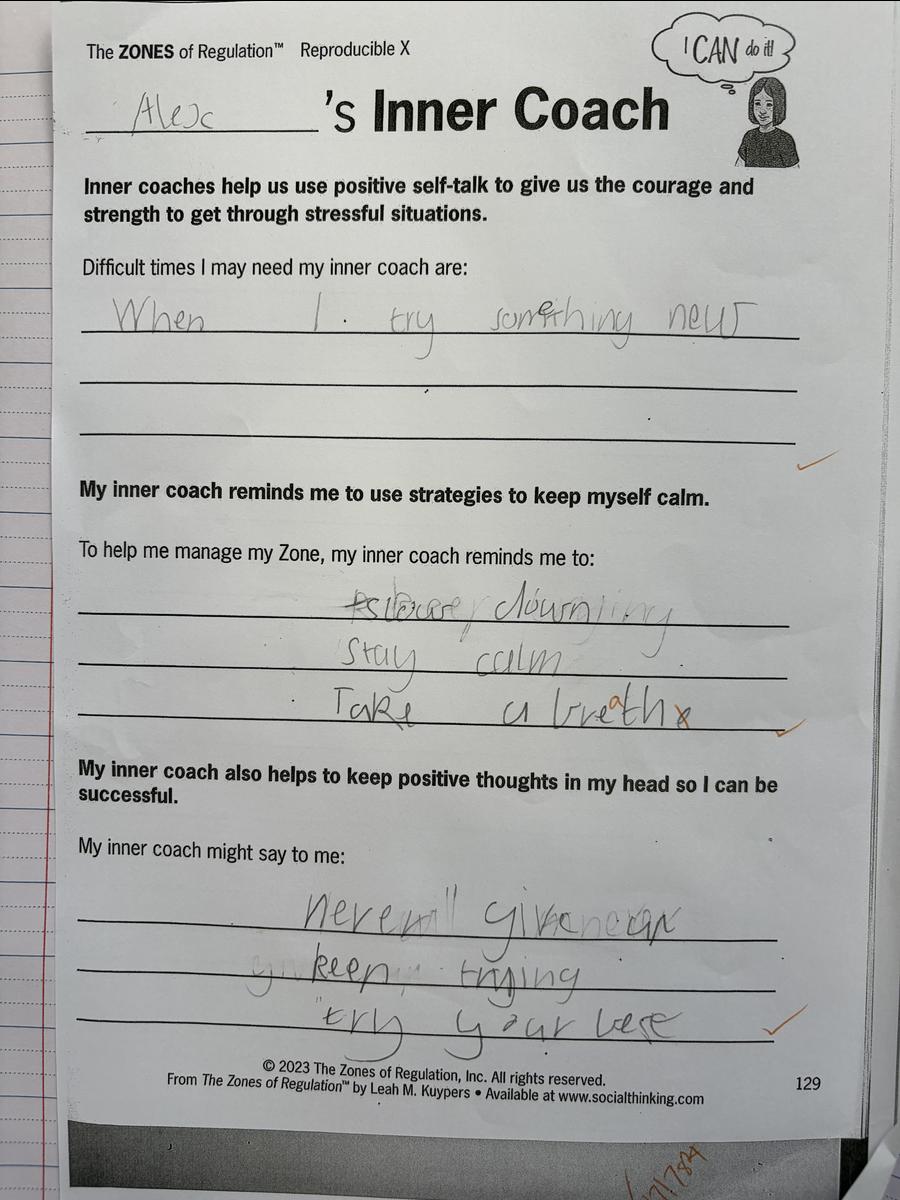 The ZONES of Regulation™ Reproducible X
I CAN do it!
Alex 's Inner Coach
Inner coaches help us use positive self-talk to give us the courage and
strength to get through stressful situations.
Difficult times I may need my inner coach are:
When I try something new
My inner coach reminds me to use strategies to keep myself calm.
To help me manage my Zone, my inner coach reminds me to:
slow down
Stay calm
Take a breath
My inner coach also helps to keep positive thoughts in my head so I can be
successful.
My inner coach might say to me:
never give up
keep trying
try your best
© 2023 The Zones of Regulation, Inc. All rights reserved.
From The Zones of Regulation™ by Leah M. Kuypers • Available at www.socialthinking.com
129